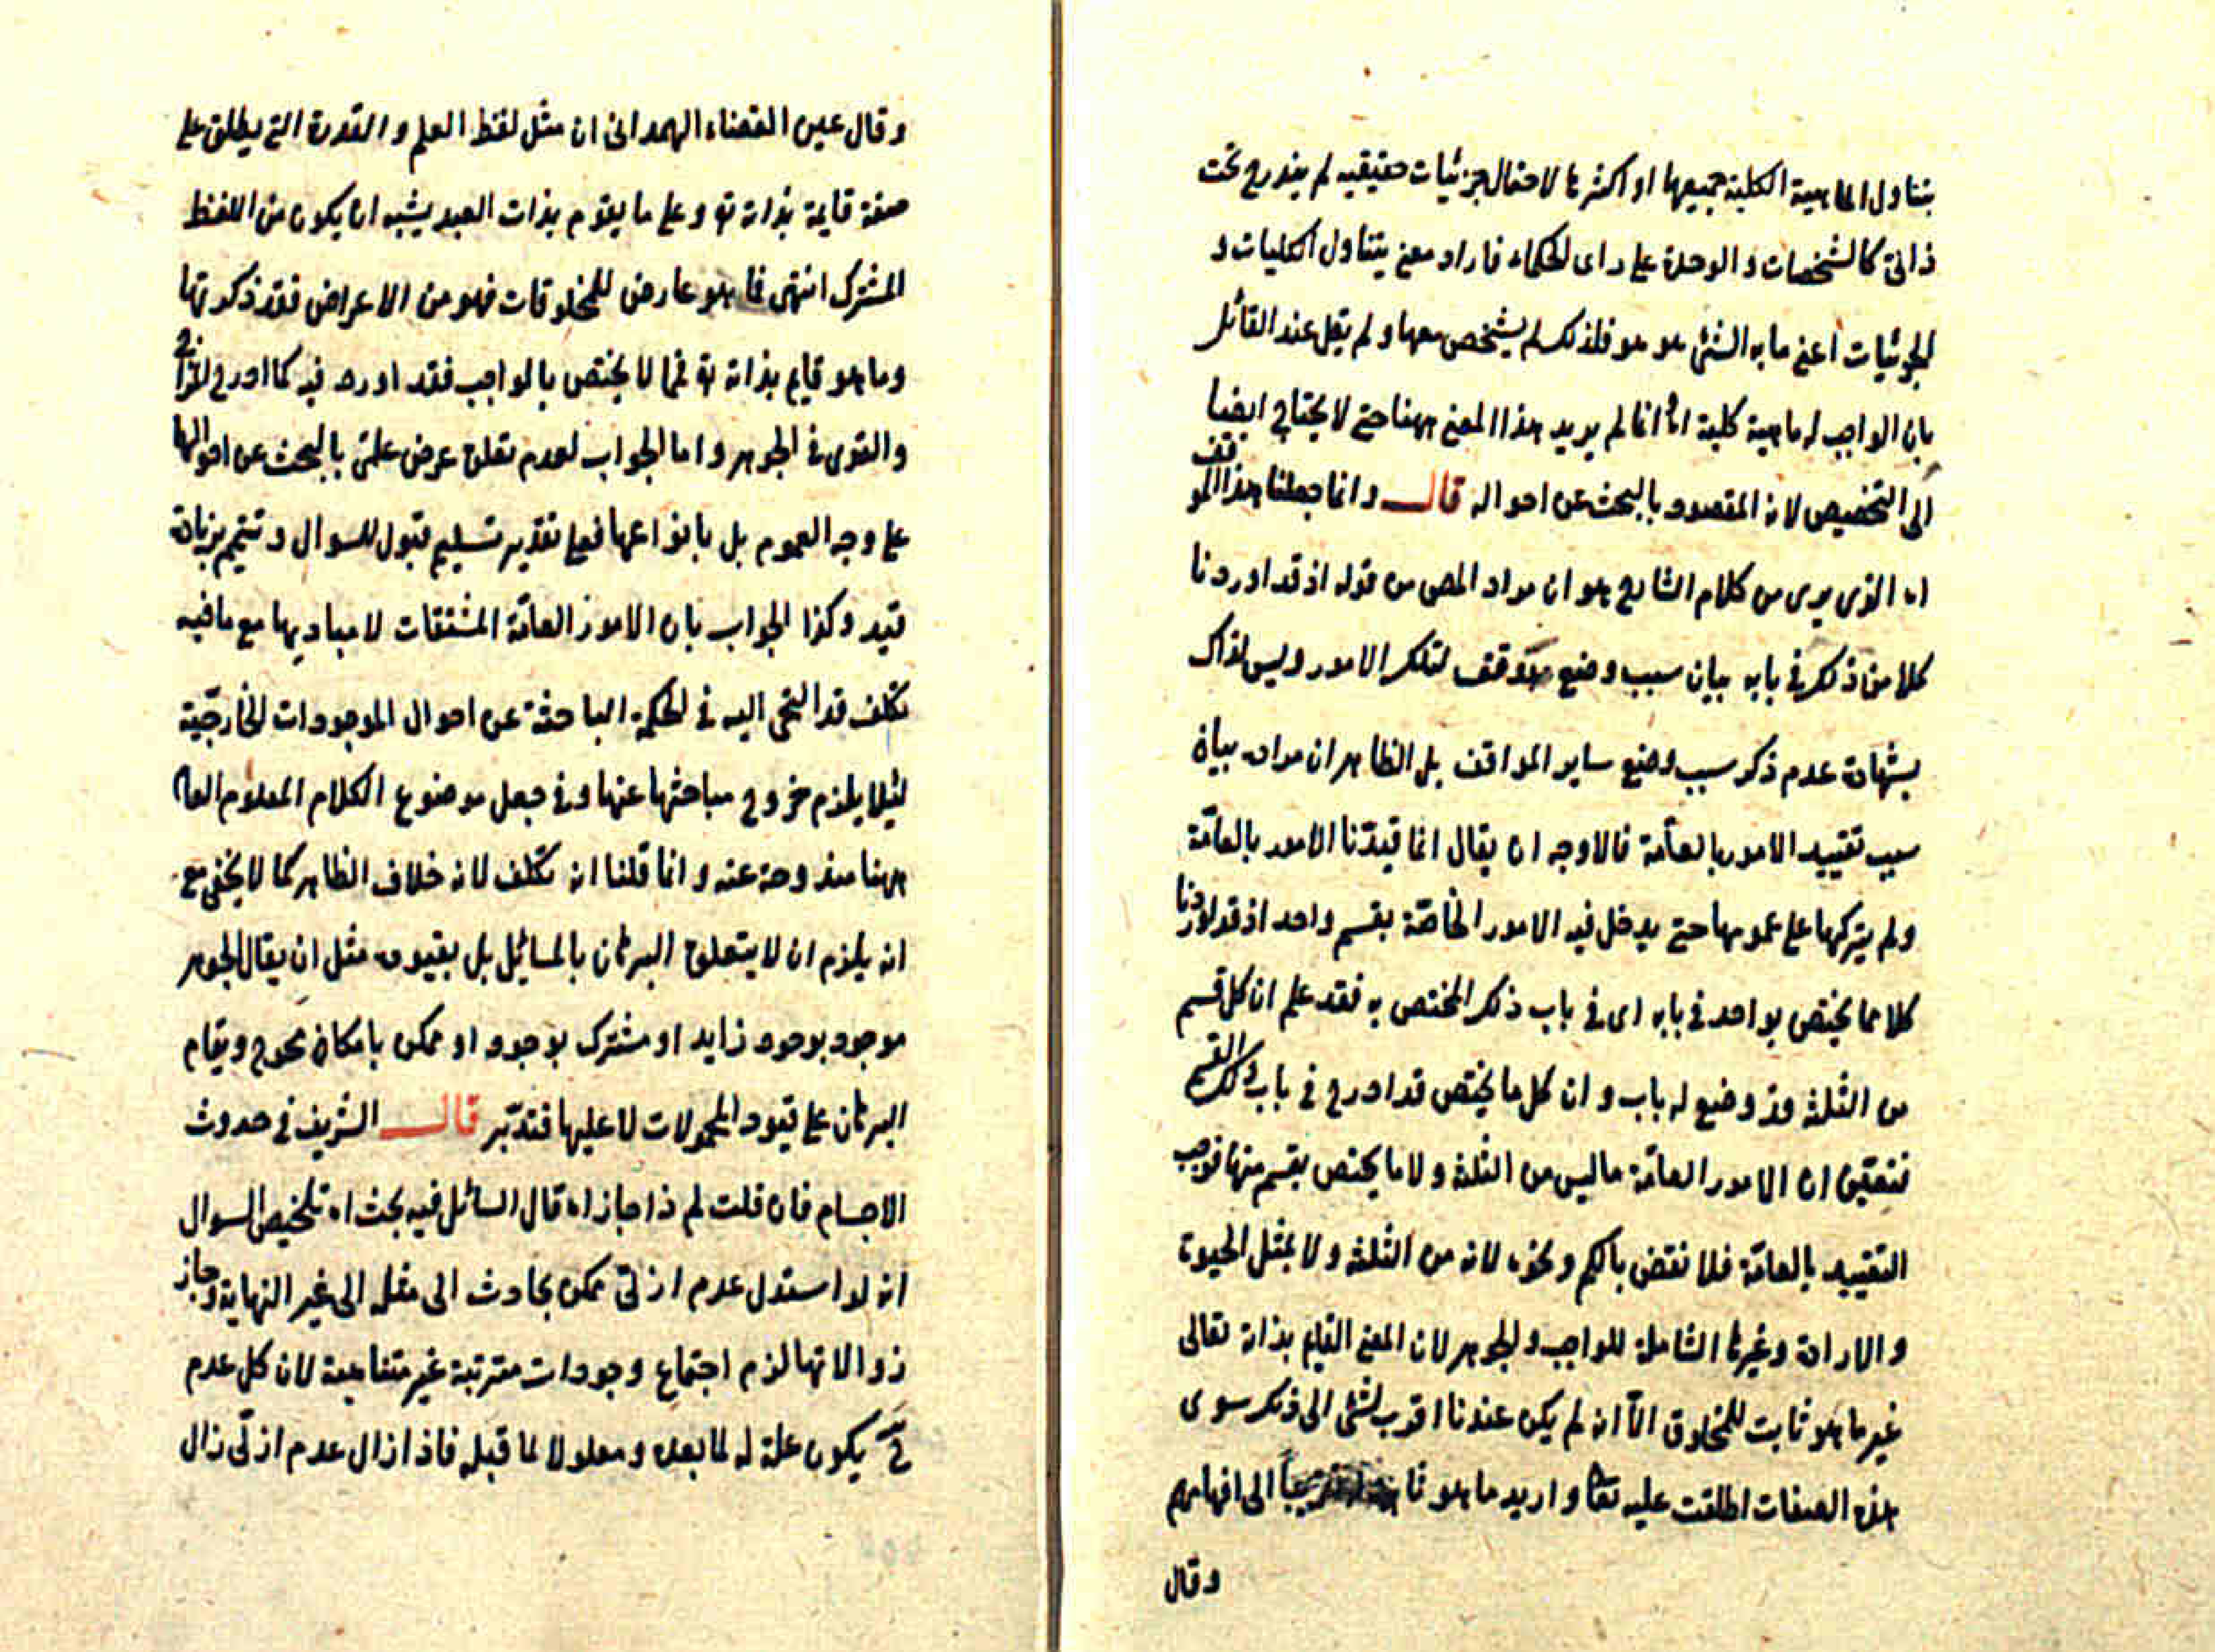 يتناول الماهية الكلية جميعها او اكثرها لاحتمال جزئيات حقيقيه لم يندرج تحت
ذاتى كالشخصات و الوحدة على راى الحكماء فاراد معنى يتناول الكليات و
الجزئيات اعنى ما به الشئ هو هو فلذلك لم يشخص معها و لم يقل عند القائل
بان الواجب له ماهية كلية انما لم يريد هذا المعنى ههنا حتى لا يحتاج ايضا
الى التخصيص لانه المقصود بالبحث عن احواله قال و انما جعلنا هذا الموقف
اه الذى يرى من كلام الشارح هو ان مراد المص من قوله اذ قد اوردنا
كلا من ذلك فى بابه بيان سبب وضع موقف لتلك الامور و ليس لذاك
بشهادة عدم ذكر سبب وضع ساير المواقف بل الظاهر ان مراده بيان
سبب تقييد الامور بالعامة فالاوجه ان يقال انما قيدنا الامور بالعامّة
ولم يتركها على عمومها حتى يدخل فيه الامور الخاصّة بقسم واحد اذ قد اوردنا
كلا مما يختص بواحد فى بابه اى فى باب ذلك المختص به فقد علم ان كل قسم
من الثلثة قد وضع له باب و ان كل ما يختص قد ادرج فى باب ذلك القسم
فتعيّن ان الامور العامّة ما ليس من الثلثة و لا ما يختص بقسم منها فوجب
التقييد بالعامّة فلا نقض بالكم و نحوه لانه من الثلثة و لا بمثل الحيوة
و الارادة و غيرها الشاملة للواجب و الجوهر لان المعنى القايم بذاته تعالى
غير ما هو ثابت للمخلوق الّا انه لم يكن عندنا اقرب لشئ الى ذلك سوى
هذه الصفات اطلقت عليه تعا و اريد ما هو الى افهامهم
وقال
وقال عين القضاء الهمدانى ان مثل لفظ العلم و القدرة التى يطلق على
صفة قايمة بذاته تع و على ما يقوم بذات العبد يشبه ان يكون من اللفظ
المشترك انتهى فما هو عارض للمخلوقات فهو من الاعراض فقد ذكر تها
وما هو قايم بذاته تع فما لا يختص بالواجب فقد اورده فيه كما ادرج
والقوى فى الجوهر و اما الجواب لعدم تعلق غرض علمى بالبحث عن احوالها
على وجه العموم بل بانواعها فعلى تقدير تسليم قبول للسوال و تتميم بزيادة
قيد و كذا الجواب بان الامور العامّة المشتقات لا مباديها مع ما فيه
تكلف قد التجى اليه فى الحكمة الباحثة عن احوال الموجودات الخارجيّة
لئيلا يلزم خروج مباحثها عنها و فى جعل موضوع الكلام المعلوم العام
ههنا مندوحة عنه و انما قلنا انه تكلف لانه خلاف الظاهر كما لا يخفى مع
انه يلزم ان لا يتعلق البرهان بالمسائيل بل بقيوده مثل ان يقال الجوهر
موجود بوجود زايد او مشترك بوجود او ممكن بامكان محوج و يقام
البرهان على قيود المحمولات لا عليها فتدبّر قال الشريف فى حدوث
الاجسام فان قلت لم ذا جاز اه قال السائل فيه بحث اه تلخيص السوال
انه لو استدل عدم ازلىّ ممكن بحادث الى مثله الى غير النهاية و جاز
زوالاتها لزم اجتماع وجودات مترتبة غير متناهية لان كل عدم
ح يكون علة له لما بعده و معلولا لما قبله فاذا زال عدم ازلىّ زال